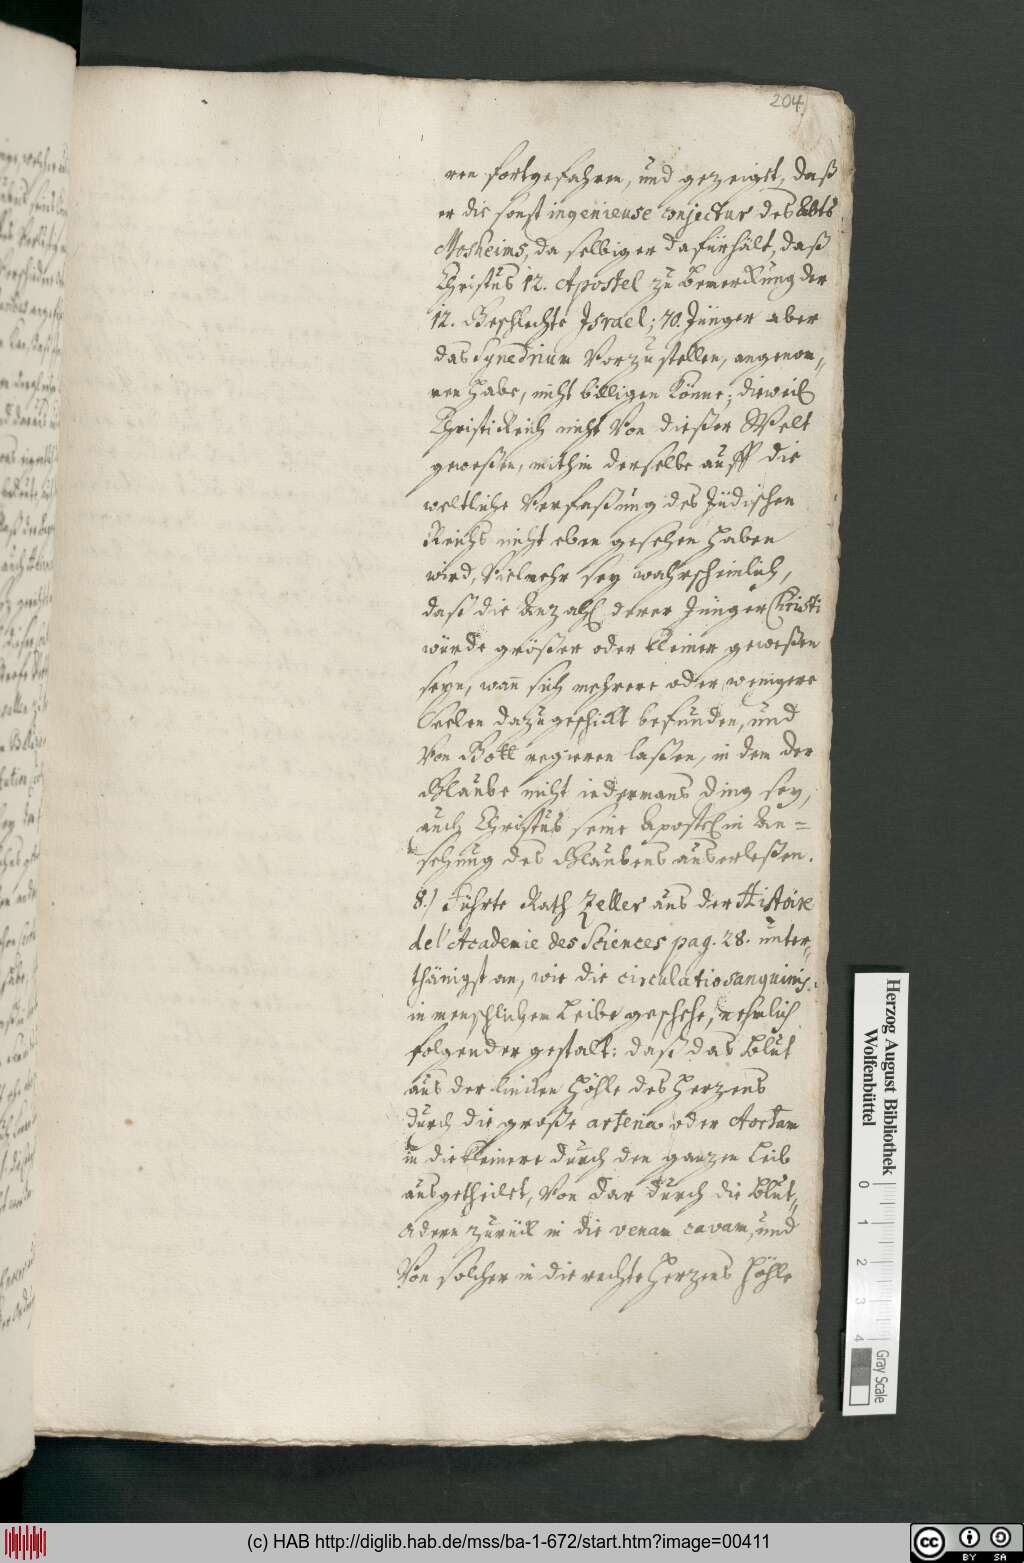 204
ren fortgefahren, und gezeigt, daß
er die sonst ingenieuse conjectur des Abts
Mosheims, da selbiger dafürhält, daß
Christus 12. Apostel zu bemerckung der
12. Geschlechte Israel; 70. Jünger aber
das Synedrium vorzustellen, angenom„
men habe, nicht billigen könne; dieweil
Christi Reich nicht von dießer Welt
geweßen, mithin derselbe auff die
weltliche Verfaßung des Jüdischen
Reichs nicht eben gesehen haben
wird, Vielmehr sey wahrscheinlich,
daß die Anzahl derer Jünger Christi
würde größer oder kleiner geweßen
seyn, wañ sich mehrere oder wenigere
Seelen dazu geschickt befunden, und
von Gott regieren laßen, in dem der
Glaube nicht iedermans ding sey,
auch Christus seine Apostel in An=
sehung des Glaubens auserleßen.
8.) Führte Rath Zeller aus der Histoire
de l'Academie des Sciences pag. 28. unter„
thänigst an, wie die circulatio sanguinis
in menschlichem Leibe geschehe, nehmlich
folgender gestalt: daß das Blut
aus der lincken Höhle des Herzens
durch die große arteria oder Aortam
in die kleinere durch den ganzen Leib
ausgetheilet, von dar durch die Blut„
adern zurück in die venam cavam, und
von solcher in die rechte Herzens Höhle
Herzog August Bibliothek
Wolfenbüttel
0 1 2 3 4
Gray Scale
(c) HAB http://diglib.hab.de/mss/ba-1-672/start.htm?image=00411
cc BY SA